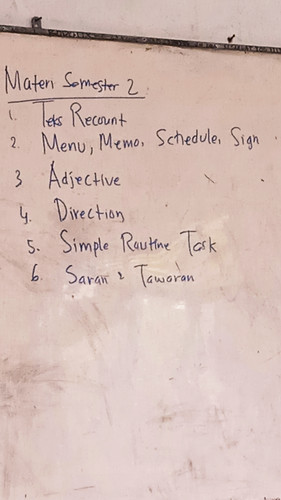 Materi Semester 2
1. Teks Recount
2. Menu, Memo, Schedule, Sign
3 Adjective
4. Direction
5. Simple Routine Task
6 Saran & Tawaran